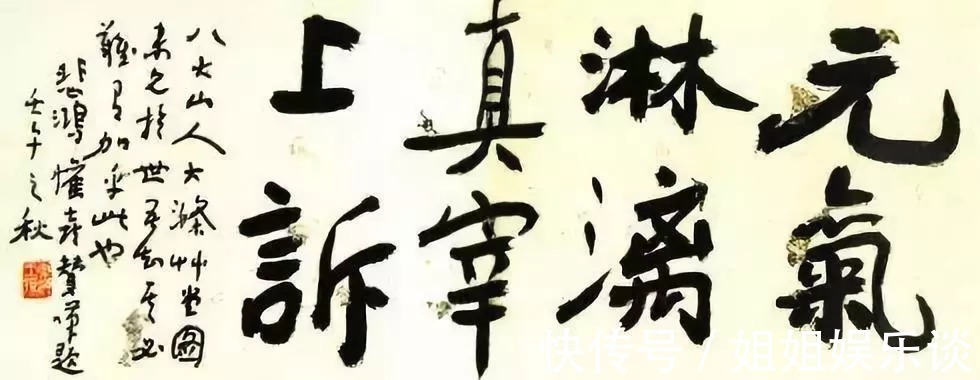 元氣
淋漓
真宰
上訴
八大山人大滌艸堂圖
未見於世吾知其必
難有加乎此也
悲鴻懽喜贊嘆題
壬午之秋
快传号 / 姐姐娱乐谈